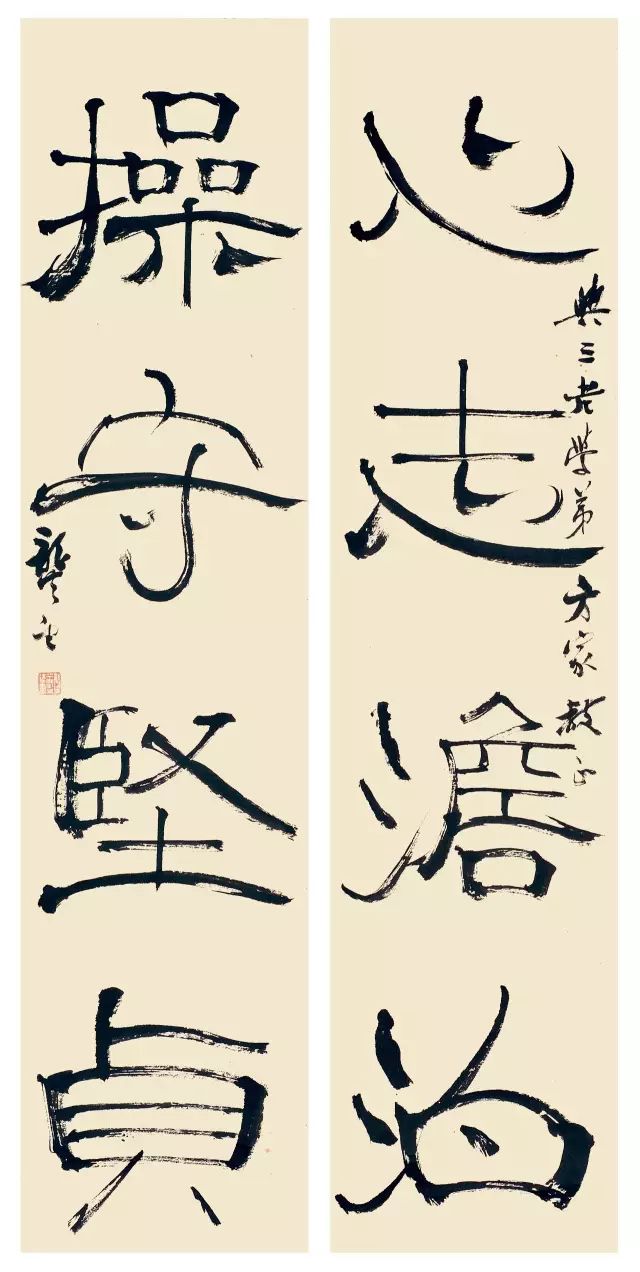 心志澹泊
典三老学弟 方家教正
操守坚贞
龔望